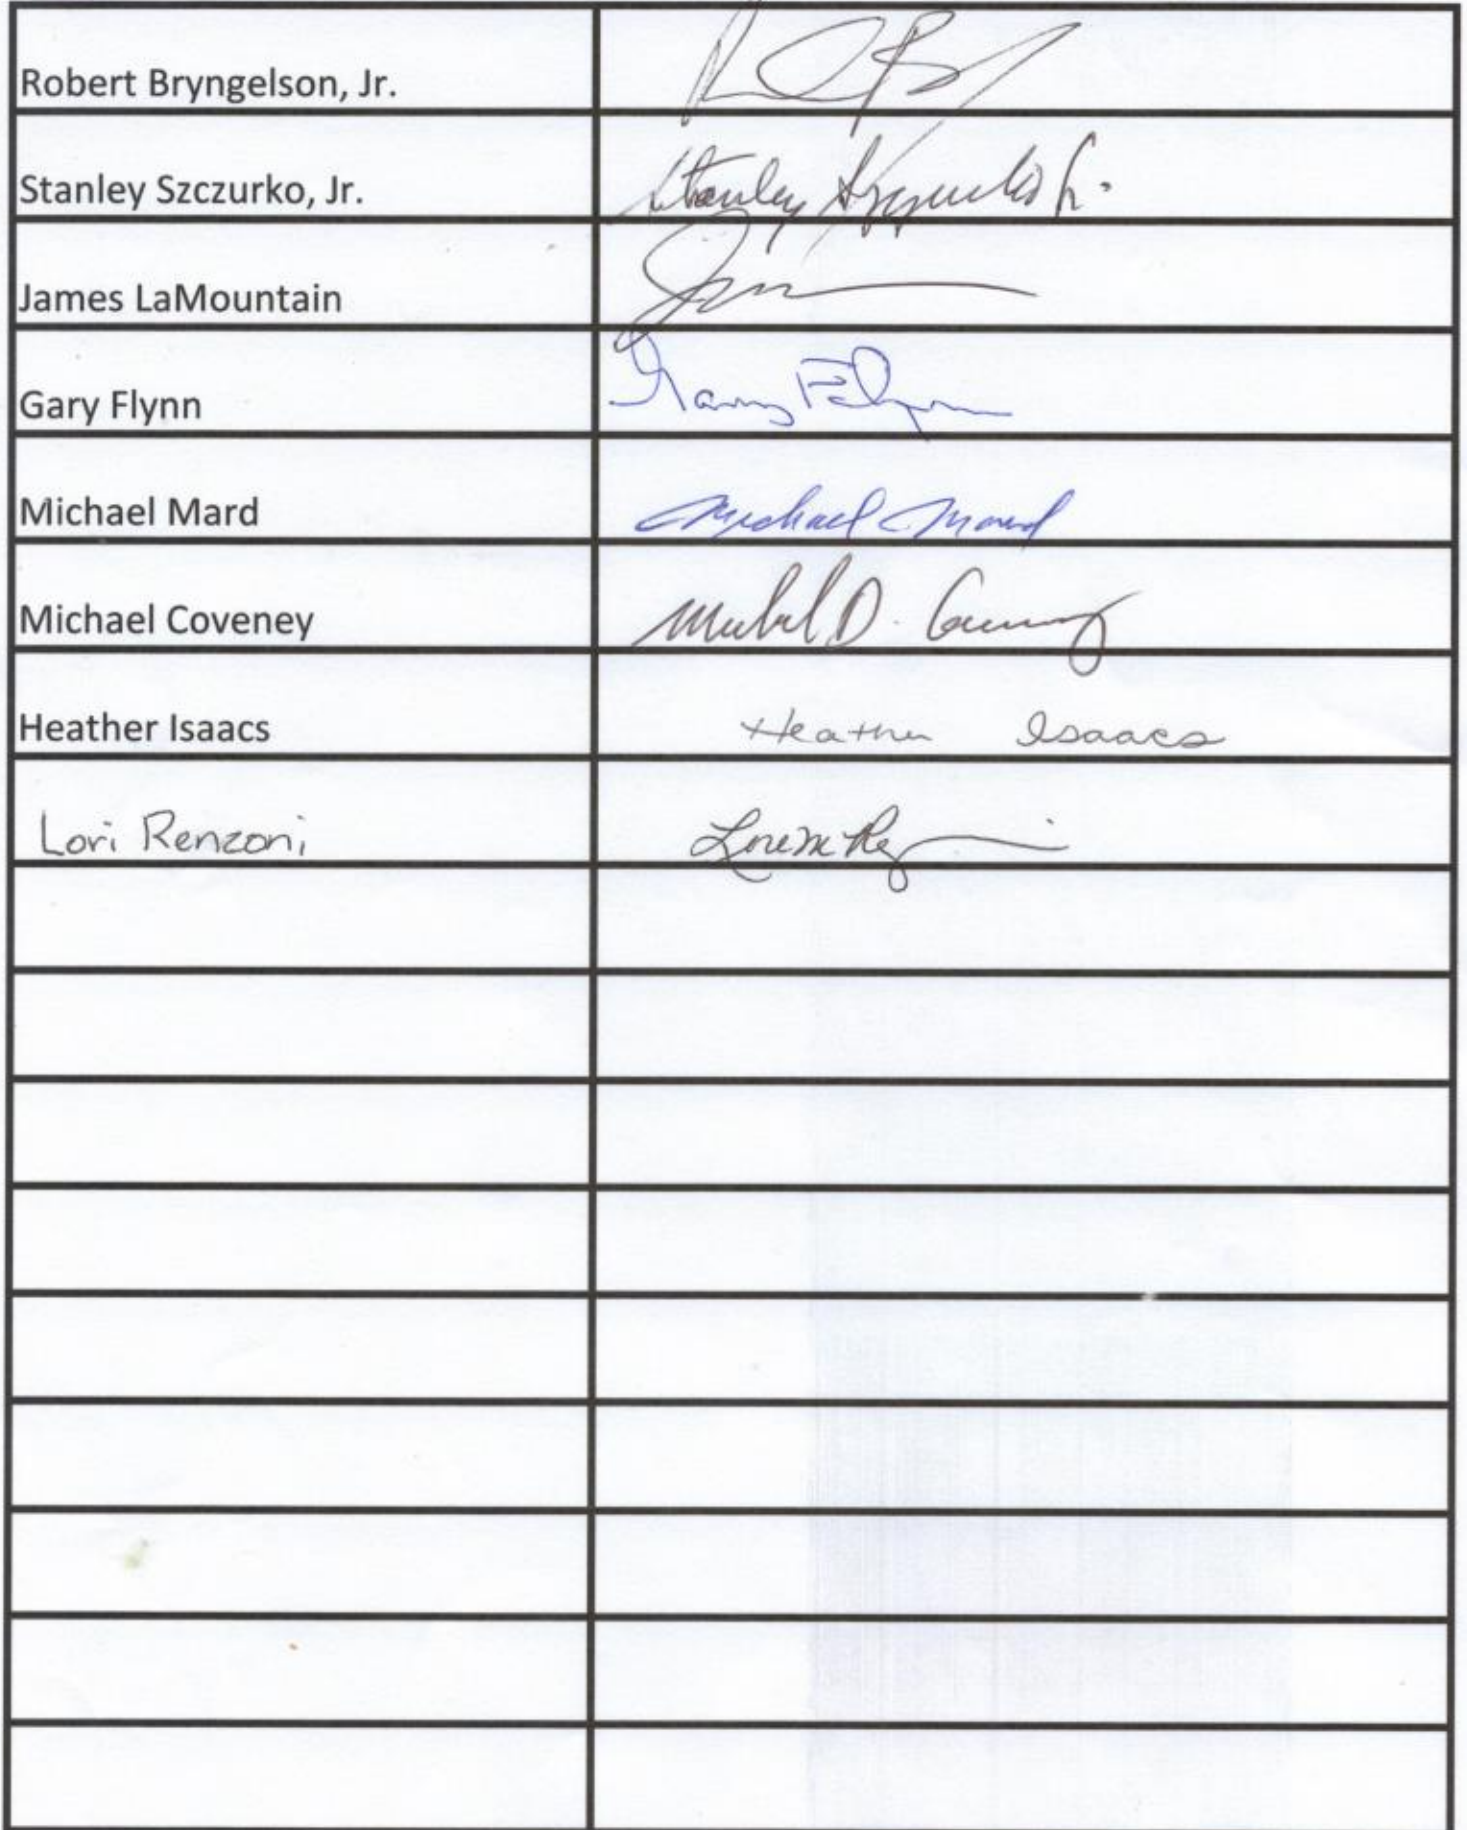 Robert Bryngelson, Jr.
Stanley Szczurko, Jr. Stanley Szczurko Jr.
James LaMountain
Gary Flynn Gary Flynn
Michael Mard Michael Mard
Michael Coveney Michael D. Coveney
Heather Isaacs Heather Isaacs
Lori Renzoni